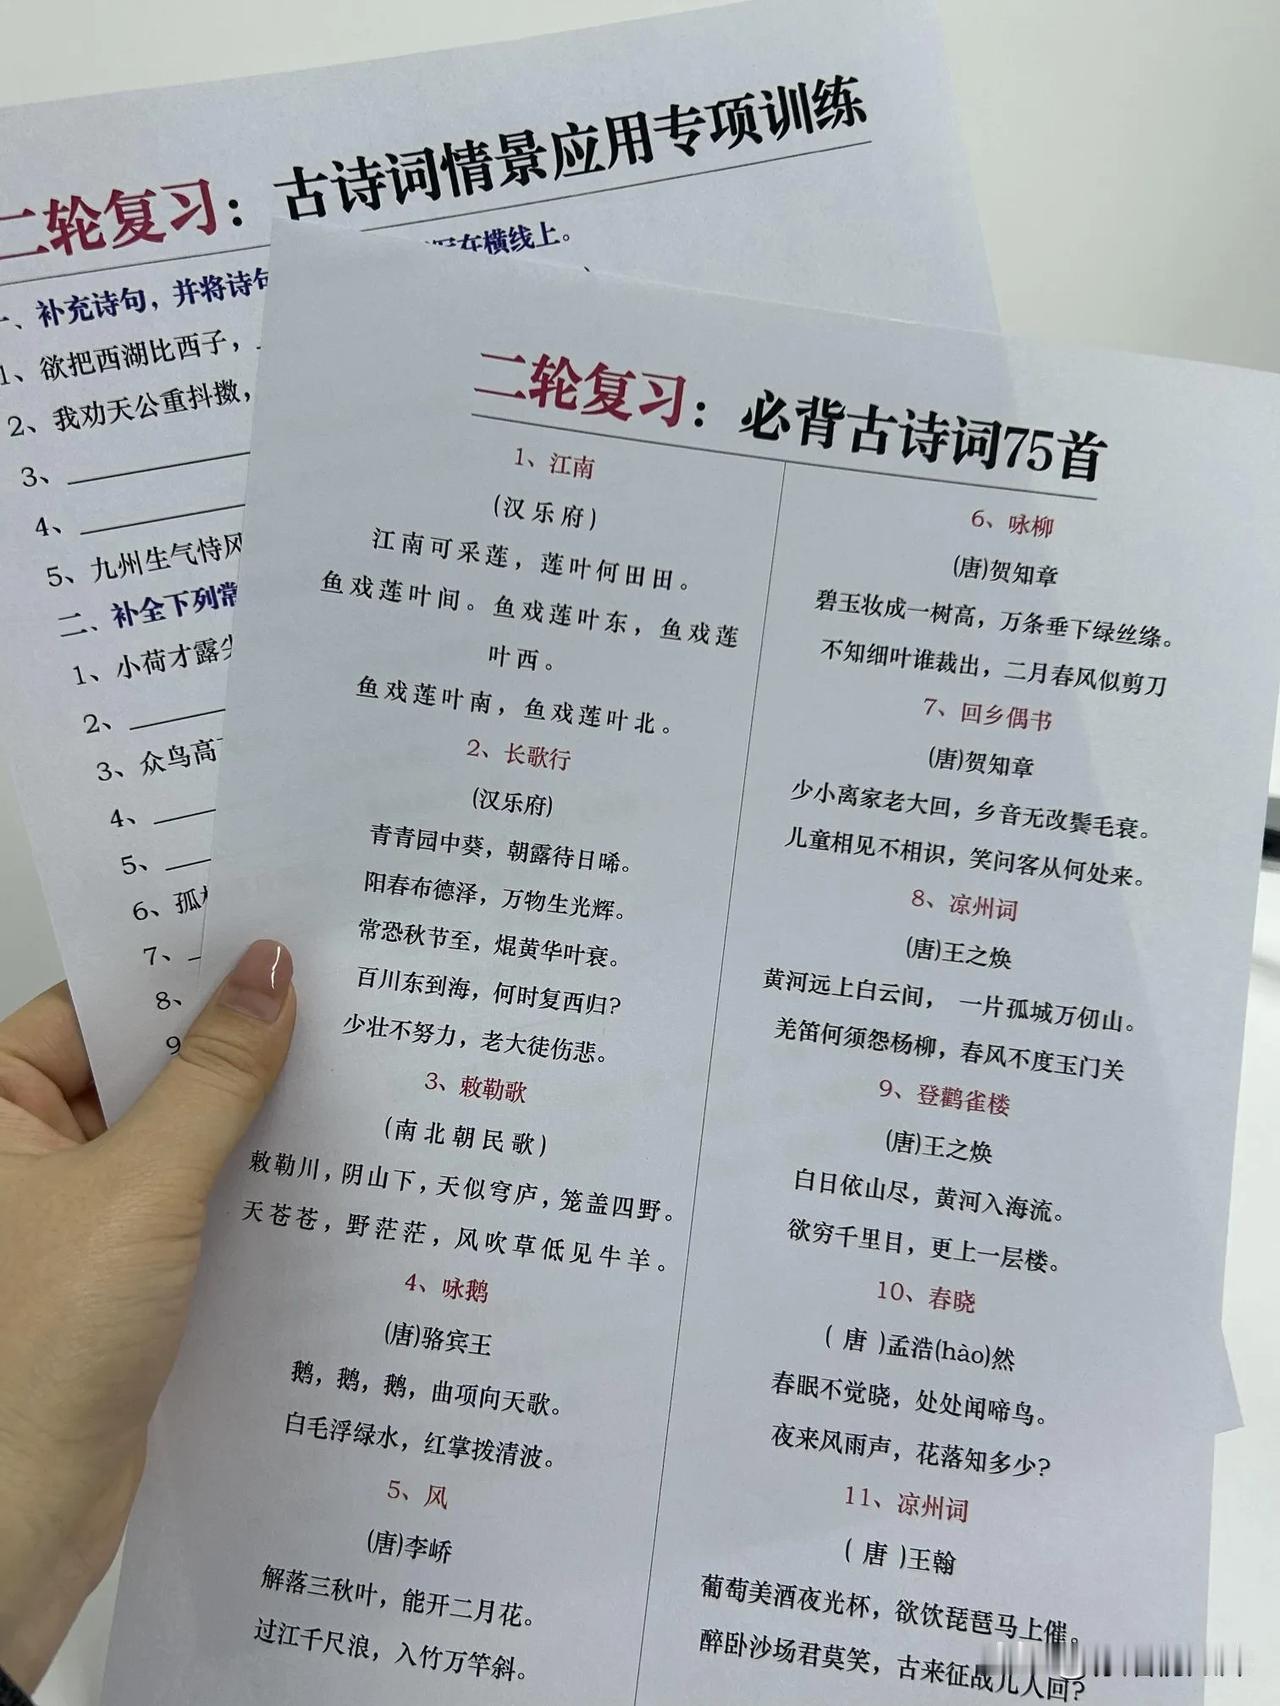 二轮复习：古诗词情景应用专项训练
一、补充诗句，并将诗句
写在横线上。
1、欲把西湖比西子，
2、我劝天公重抖擞，
3、
4、
5、九州生气恃风
二、补全下列常
1、小荷才露尖
2、
3、众鸟高
4、
5、
6、孤
7、
8、
9
二轮复习：必背古诗词75首
1、江南
(汉乐府)
江南可采莲，莲叶何田田。
鱼戏莲叶间。鱼戏莲叶东，鱼戏莲
叶西。
鱼戏莲叶南，鱼戏莲叶北。
2、长歌行
(汉乐府)
青青园中葵，朝露待日晞。
阳春布德泽，万物生光辉。
常恐秋节至，焜黄华叶衰。
百川东到海，何时复西归?
少壮不努力，老大徒伤悲。
3、敕勒歌
(南北朝民歌)
敕勒川，阴山下，天似穹庐，笼盖四野。
天苍苍，野茫茫，风吹草低见牛羊。
4、咏鹅
(唐)骆宾王
鹅，鹅，鹅，曲项向天歌。
白毛浮绿水，红掌拨清波。
5、风
(唐)李峤
解落三秋叶，能开二月花。
过江千尺浪，入竹万竿斜。
6、咏柳
(唐)贺知章
碧玉妆成一树高，万条垂下绿丝绦。
不知细叶谁裁出，二月春风似剪刀
7、回乡偶书
(唐)贺知章
少小离家老大回，乡音无改鬓毛衰。
儿童相见不相识，笑问客从何处来。
8、凉州词
(唐)王之焕
黄河远上白云间， 一片孤城万仞山。
羌笛何须怨杨柳，春风不度玉门关
9、登鹳雀楼
(唐)王之焕
白日依山尽，黄河入海流。
欲穷千里目，更上一层楼。
10、春晓
( 唐 )孟浩(hào)然
春眠不觉晓，处处闻啼鸟。
夜来风雨声，花落知多少?
11、凉州词
( 唐 )王翰
葡萄美酒夜光杯，欲饮琵琶马上催。
醉卧沙场君莫笑，古来征战几人回?